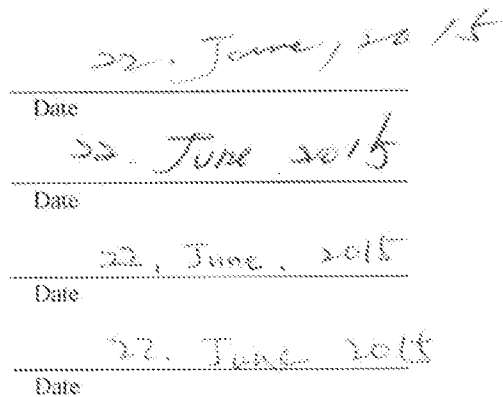 22. June, 2015
Date
22. June 2015
Date
22, June, 2015
Date
22. June 2015
Date